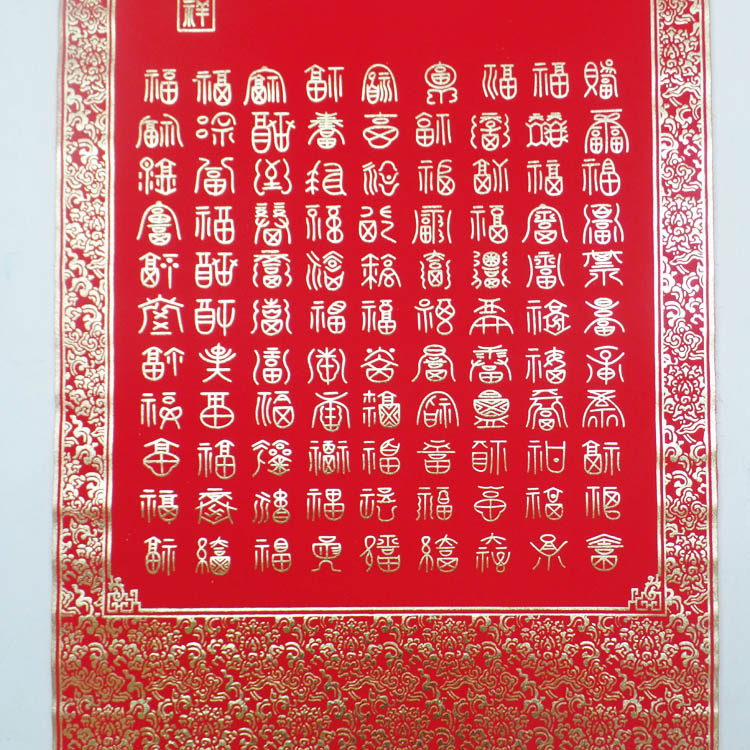 祥
福福福福福福福福福
福福福福福福福福福
福福福福福福福福福
福福福福福福福福福
福福福福福福福福福
福福福福福福福福福
福福福福福福福福福
福福福福福福福福福
福福福福福福福福福
福福福福福福福福福
福福福福福福福福福